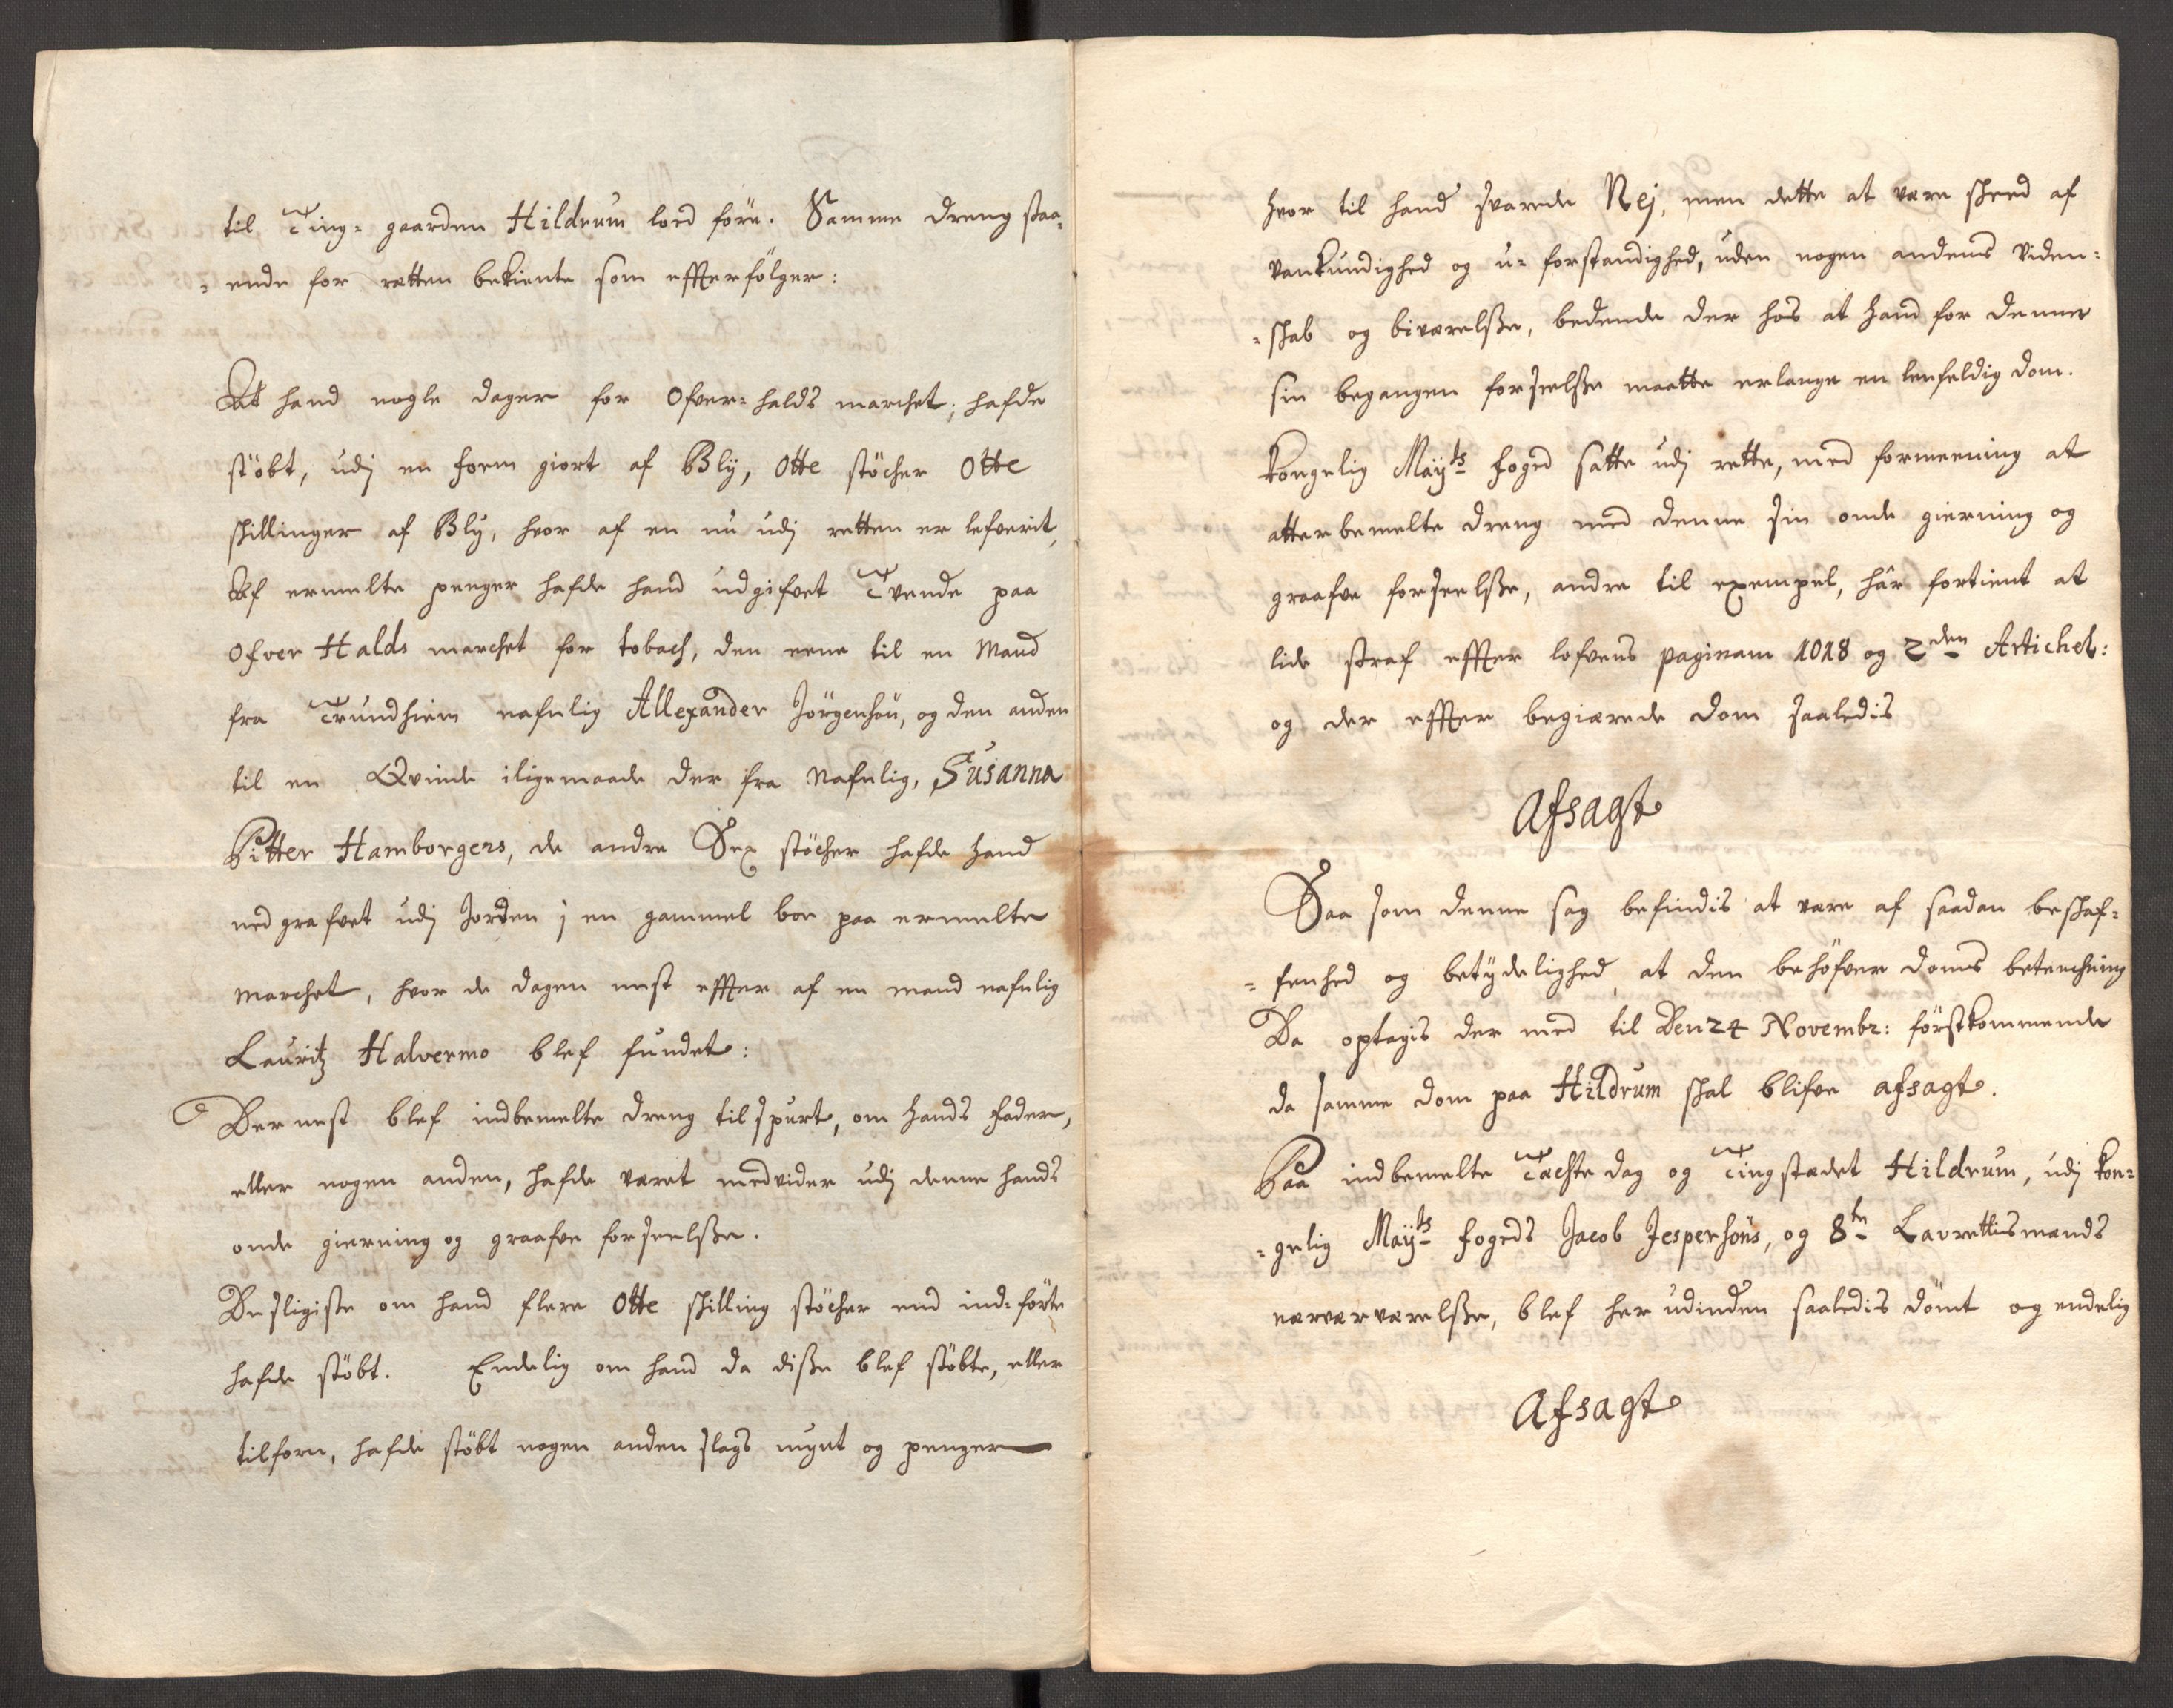 til Ting= gaarden Hildrum lod före. Samme dreng staa=
=ende for rætten bekiente som effterfölger:
At hand nogle dager for Ofver=halds marchet; hafde
stöbt, udj en form giort af Blÿ, Otte stöcher Otte
skillinger af Blÿ, hvor af en nu udj retten er lefverit,
Af ermelte penger hafde hand udgifvet Tvende paa
Ofver Halds marchet for tobach, den eene til en Mand
fra Trundhiem nafnlig Allexander Jörgensön, og den anden
til en Qvinde iligemaade der fra Nafnlig, Susanna
Pitter Hamborgers, de andre Sex stöcher hafde hand
ned grafvet udj Jorden j en gammel boe paa ermelte
Marchet, hvor de dagen nest effter af en mand nafnlig
Lauritz Halvermo blef fundet:
Der nest blef indbemelte dreng tilspurt, om hands Fader,
eller nogen anden, hafde været medvider udj denne hands
onde gierning og graafve forseelsse.
Desligiste om hand flere Otte skilling stöcher end ind=förte
hafde stöbt. Endelig om hand da disse blef stöbte, eller
tilforn, hafde stöbt nogen anden slags mynt og penger
hvor til hand svarede Nej, men dette at være skeed af
vankundighed og u=forstandighed, uden nogen andens viden=
=skab og biværelsse, bedende der hos at hand for denne
sin begangen forseelsse maatte erlange en lenfeldig dom.
Kongelig Maÿts foged satte udj rette, med formeening at
atterbemelte dreng med denne sin onde gierning og
graafve forseelsse, andre til exempel, har fortient at
lide straf effter lofvens paginam 1018 og 2den Artichel:
og der effter begiærede dom saaledis
Afsagt
Saa som denne sag befindis at være af saadan beskaf=
=fenhed og betÿdelighed at den behöfver doms betenchning
Da optagis der med til Den 24 Novembr: förstkommende
da samme dom paa Hildrum skal blifve afsagt.
Paa indbemelte Tæchte dag og Tingstædet Hildrum, udj kon=
=gelig Maÿts fogeds Jacob Jespersöns, og 8te Lavrettismands
nærværværelsse, blef her udinden saaledis dömt og endelig
Afsagt